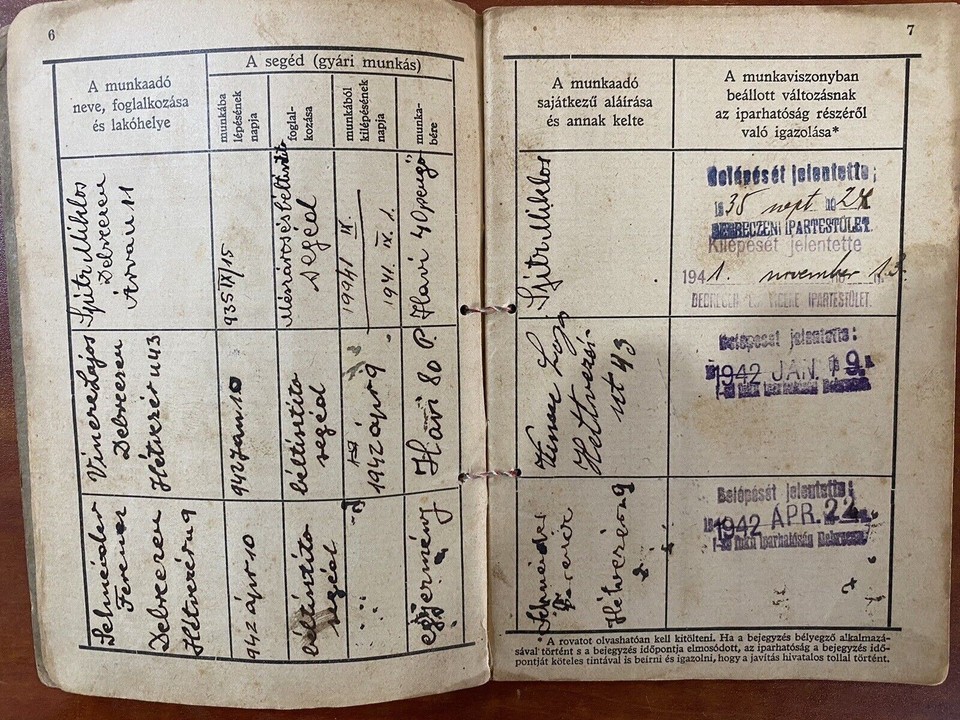 6
A munkaadó
neve, foglalkozása
és lakóhelye
A segéd (gyári munkás)
munkába
lépésének
napja
foglal-
kozása
munkából
kilépésének
napja
munka-
bére
Miklos
Debrecen
Árva u 11
935 IX/15
Mészáros és béltisztitó
segéd
1941 IX
1941. IX. 1.
Havi 40 pengő
Vincze Lajos
Debrecen
Hétvezér u 43
942 Jan 10
béltisztito
segéd
1942 ápr 9
Havi 80 P.
Ferenc
Debrecen
Hétvezér u 9
942 ápr 10
béltisztito
segéd
egyezmény
7
A munkaadó
sajátkezű aláírása
és annak kelte
A munkaviszonyban
beállott változásnak
az iparhatóság részéről
való igazolása*
Miklos
Belépését jelentette:
1935 szept 24
DEBRECZENI IPARTESTÜLET.
Kilépését jelentette
1941. november 13.
IPARTESTÜLET.
Hétvezér
ut 43
Belépését jelentette:
1942 JAN. 19.
I-ső fokú Iparhatóság Debrecen.
Ferenc
Hétvezér u 9
Belépését jelentette:
1942 ÁPR. 22.
I-ső fokú Iparhatóság Debrecen.
* A rovatot olvashatóan kell kitölteni. Ha a bejegyzés bélyegző alkalmazá-
sával történt s a bejegyzés időpontja elmosódott, az iparhatóság a bejegyzés idő-
pontját köteles tintával is beírni és igazolni, hogy a javítás hivatalos tollal történt.